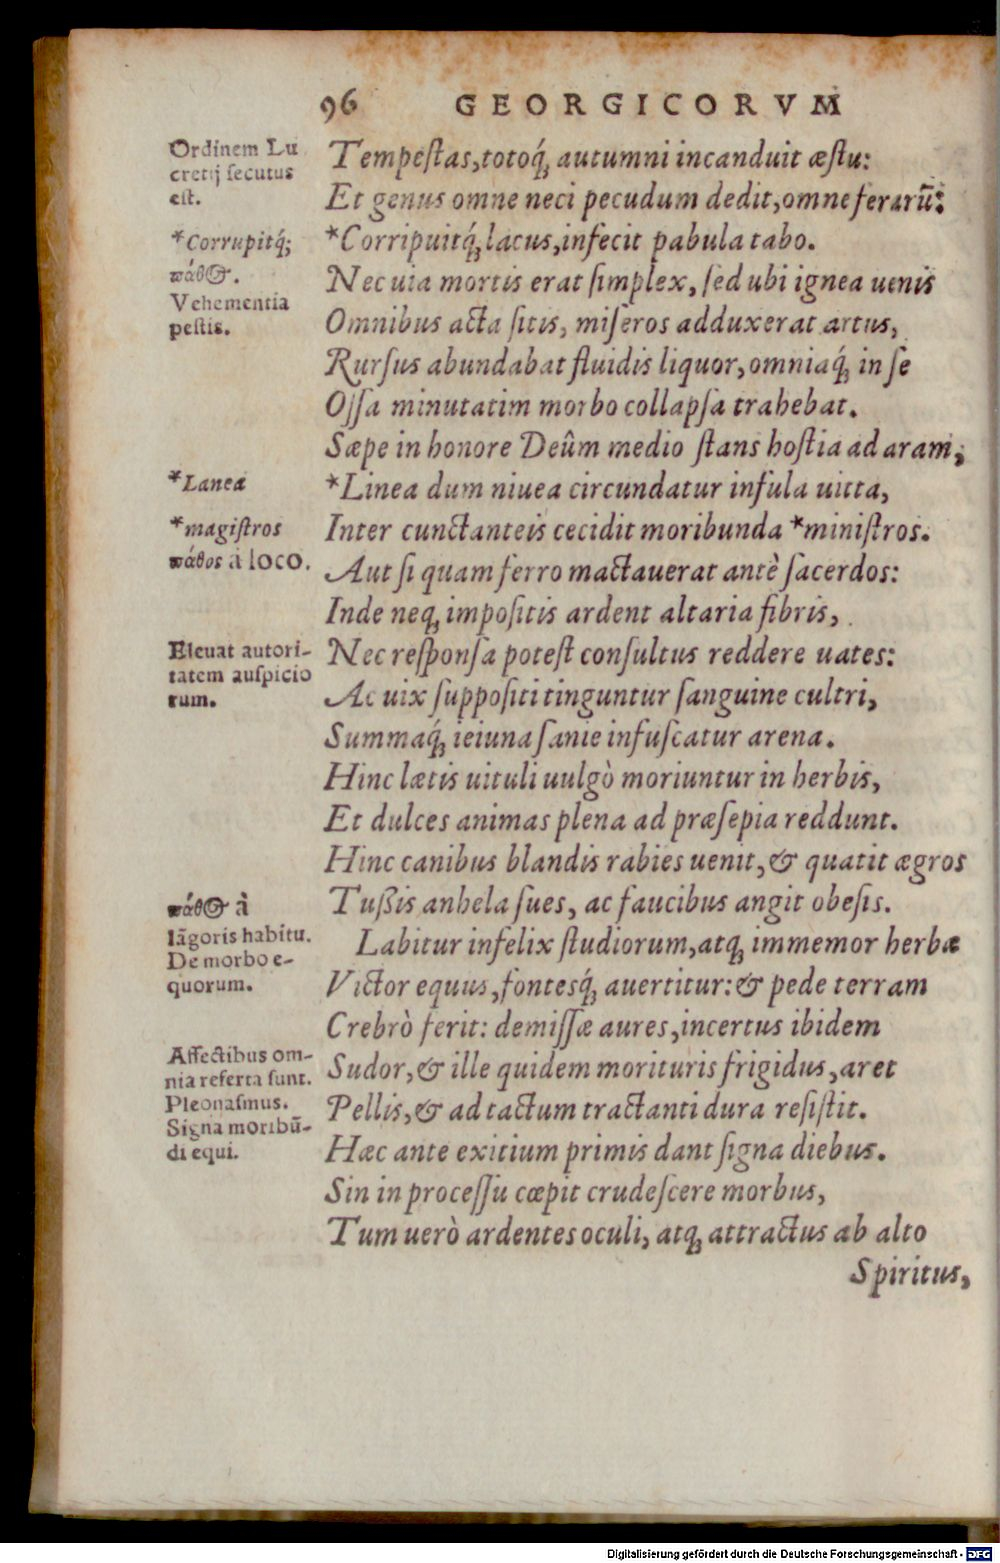 96 GEORGICORVM
Ordinem Lu
cretij secutus
est.
*Corrupitq́;
πάθ⊕.
Vehementia
pestis.
*Lanea
*magistros
πάθος à loco.
Eleuat autori-
tatem auspicio
rum.
πάθ⊕ à
lāgoris habitu.
De morbo e-
quorum.
Affectibus om-
nia referta sunt.
Pleonasmus.
Signa moribū-
di equi.
Tempeſtas, totoq́; autumni incanduit æſtu:
Et genus omne neci pecudum dedit, omne ferarū:
*Corripuitq́; lacus, infecit pabula tabo.
Nec uia mortis erat ſimplex, ſed ubi ignea uenis
Omnibus acta ſitis, miſeros adduxerat artus,
Rurſus abundabat fluidis liquor, omniaq́; in ſe
Oſſa minutatim morbo collapſa trahebat.
Sæpe in honore Deûm medio ſtans hoſtia ad aram,
*Linea dum niuea circundatur infula uitta,
Inter cunctanteis cecidit moribunda *miniſtros.
Aut ſi quam ferro mactauerat antè ſacerdos:
Inde neq; impoſitis ardent altaria fibris,
Nec reſponſa poteſt conſultus reddere uates:
Ac uix ſuppoſiti tinguntur ſanguine cultri,
Summaq́; ieiuna ſanie infuſcatur arena.
Hinc lætis uituli uulgò moriuntur in herbis,
Et dulces animas plena ad præſepia reddunt.
Hinc canibus blandis rabies uenit, & quatit ægros
Tußis anhela ſues, ac faucibus angit obeſis.
Labitur infelix ſtudiorum, atq; immemor herbæ
Victor equus, fontesq́; auertitur: & pede terram
Crebrò ferit: demiſſæ aures, incertus ibidem
Sudor, & ille quidem morituris frigidus, aret
Pellis, & ad tactum tractanti dura reſiſtit.
Hæc ante exitium primis dant ſigna diebus.
Sin in proceſſu cœpit crudeſcere morbus,
Tum uerò ardentes oculi, atq; attractus ab alto
Spiritus,
Digitalisierung gefördert durch die Deutsche Forschungsgemeinschaft - DFG